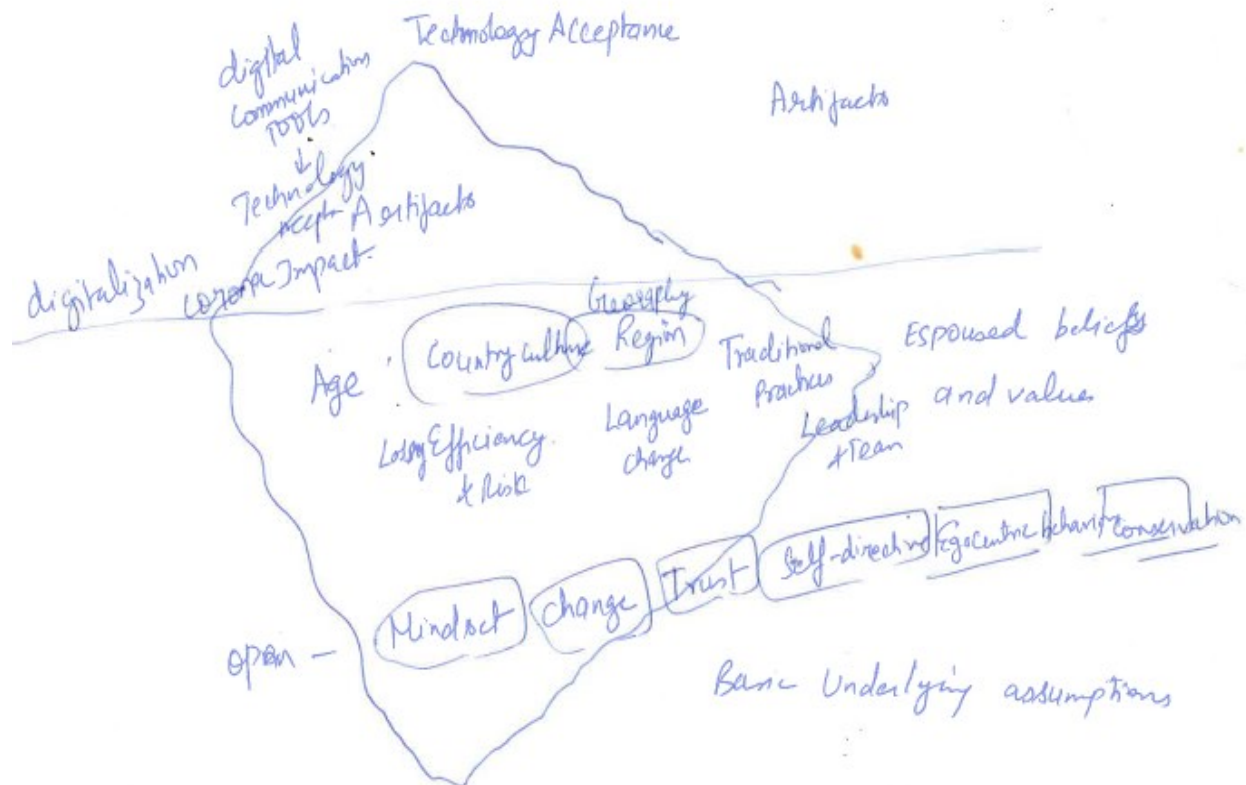 Technology Acceptance
digital
communication
TOOLS
Artifacts
Technology
Artifacts
digitalization
Corona Impact.
Geography
Age
Country culture
Region
Traditional
Practices
Espoused beliefs
and values
Efficiency
& Risk
Language
change
Leadership
+Team
open - Mindset
change
Trust
Self-directive
Egocentric behavior
Conservation
Basic Underlying assumptions